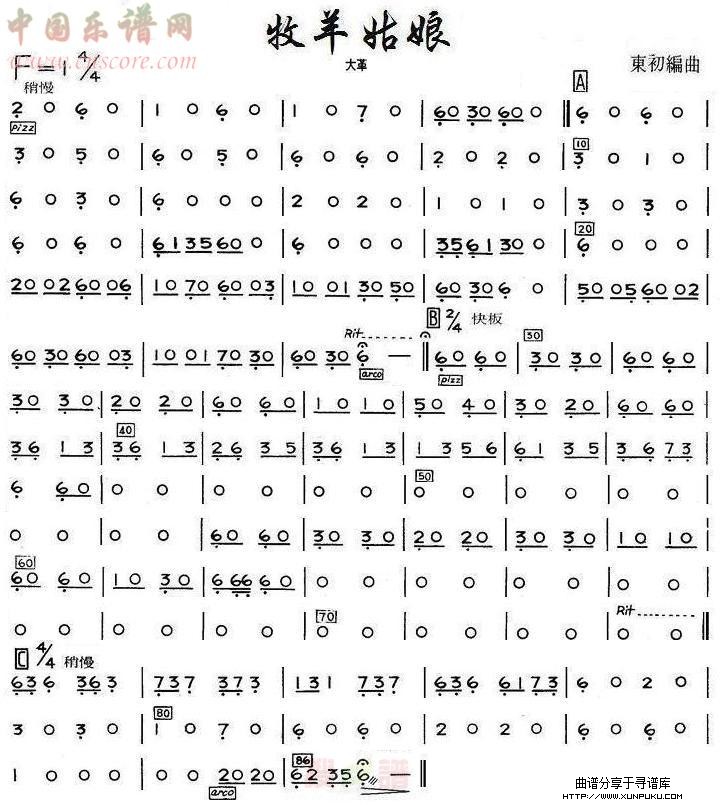 中国乐谱网
www.cnscore.com
牧羊姑娘
F=1 4/4
大革
東初編曲
稍慢
A
2 0 6 0 | 1 0 6 0 | 1 0 7 0 | 60 30 60 0 || 6 0 6 0
pizz
10
3 0 5 0 | 6 0 5 0 | 6 0 6 0 | 2 0 2 0 | 3 0 1 0
6 0 3 0 | 6 0 0 0 | 2 0 2 0 | 1 0 1 0 | 3 0 3 0
20
6 0 6 0 | 61 35 60 0 | 6 0 0 0 | 35 61 30 0 | 6 0 0 0
20 02 60 06 | 10 70 60 03 | 10 01 30 50 | 60 30 6 0 | 50 05 60 02
Rit
B 2/4 快板
30
60 30 60 03 | 10 01 70 30 | 60 30 6 — || 60 60 | 30 30 | 60 60
arco
pizz
30 30 | 20 20 | 60 60 | 10 10 | 50 40 | 30 20 | 60 60
40
36 13 | 36 13 | 26 35 | 36 13 | 13 56 | 61 35 | 36 73
50
6 60 | 0 0 | 0 0 | 0 0 | 0 0 | 0 0 | 0 0
0 0 | 0 0 | 60 60 | 30 30 | 20 20 | 30 30 | 10 10
60
60 60 | 10 30 | 6 66 60 | 0 0 | 0 0 | 0 0 | 0 0
70
Rit
0 0 | 0 0 | 0 0 | 0 0 | 0 0 | 0 0 | 0 0 ||
C 4/4 稍慢
63 6 36 3 | 73 7 37 3 | 13 1 73 7 | 63 6 61 73 | 6 0 2 0
80
3 0 3 0 | 1 0 7 0 | 6 0 6 0 | 2 0 2 0 | 6 0 6 0
86
1 0 0 0 | 0 0 20 20 | 62 35 6 — ||
arco
曲谱分享于寻谱库
HTTP://WWW.XUNPUKU.COM